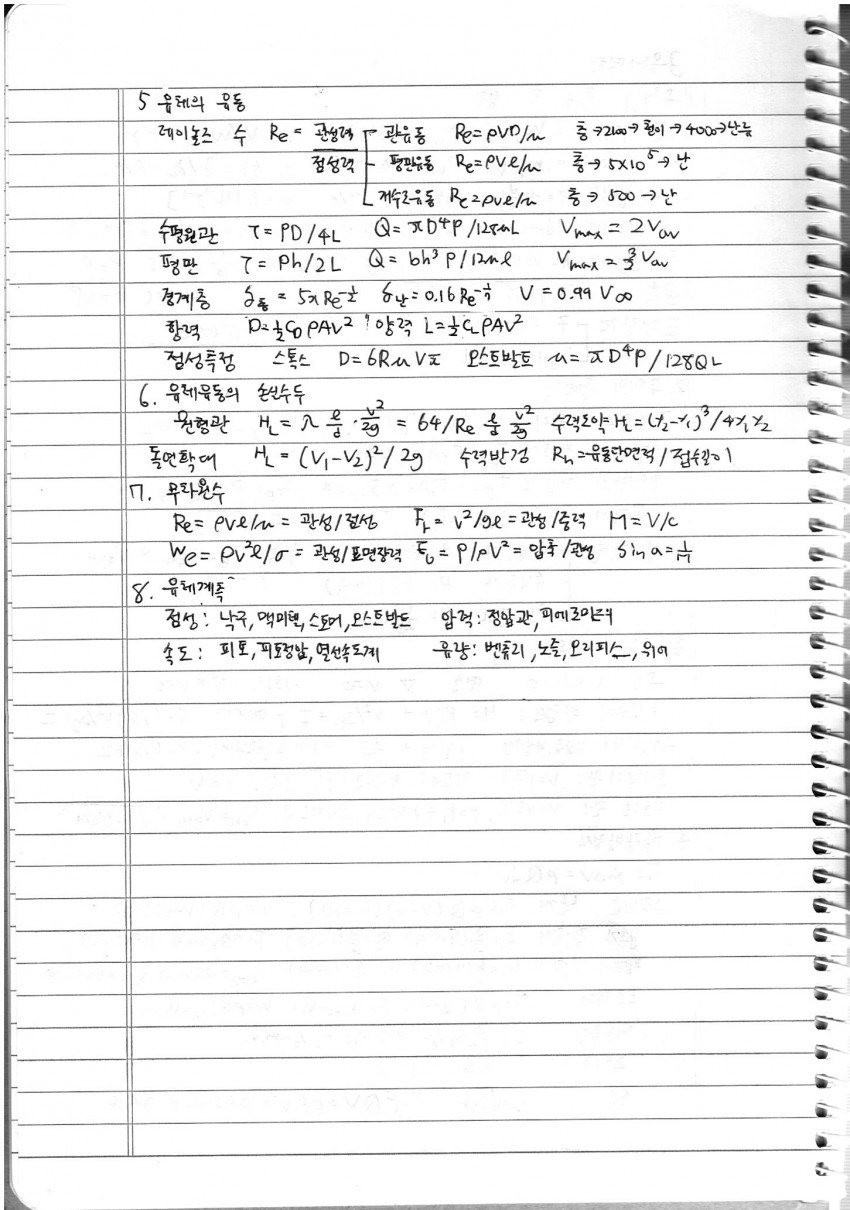 5 유체의 유동
레이놀즈 수 Re = 관성력/점성력 관유동 Re = ρVD/μ 층→2100→천이→4000→난류
평판유동 Re = ρVℓ/μ 층→5×10⁵→난
개수로유동 Re = ρVℓ/μ 층→500→난
수평원관 τ = PD/4L Q = πD⁴P/128μL Vmax = 2Vav
평판 τ = Ph/2L Q = bh³P/12μℓ Vmax = 3/2 Vav
경계층 δ층 = 5xRe^-1/2 δ난 = 0.16Re^-1/7 V = 0.99V∞
항력 D = ½C_D ρAV² 양력 L = ½C_L ρAV²
점성측정 스톡스 D = 6RμVπ 오스트발트 μ = πD⁴P/128QL
6. 유체유동의 손실수두
원형관 H_L = λ ℓ/d · V²/2g = 64/Re ℓ/d V²/2g 수력도약 H_L = (y₂-y₁)³/4y₁y₂
돌연확대 H_L = (V₁-V₂)²/2g 수력반경 Rh = 유동단면적/접수길이
7. 무차원수
Re = ρVℓ/μ = 관성/점성 Fr = V²/gℓ = 관성/중력 M = V/C
We = ρV²ℓ/σ = 관성/표면장력 Eu = P/ρV² = 압축/관성 sin α = 1/M
8. 유체계측
점성: 낙구, 맥미첼, 스토머, 오스트발트 압력: 정압관, 피에조미터
속도: 피토, 피토정압, 열선속도계 유량: 벤츄리, 노즐, 오리피스, 위어